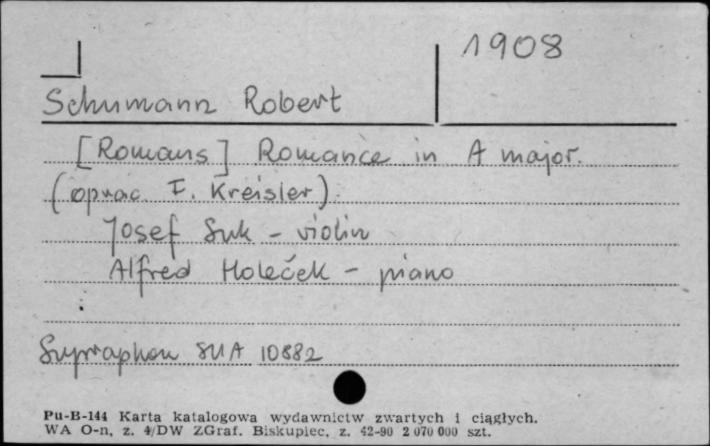 1908
Schumann Robert
[Romans] Romance in A major.
(oprac. F. Kreisler)
Josef Suk - violin
Alfred Holeček - piano
Supraphon SUA 10882
Pu-B-144 Karta katalogowa wydawnictw zwartych i ciągłych.
WA O-n, z. 4/DW ZGraf. Biskupiec, z. 42-90 2 070 000 szt.